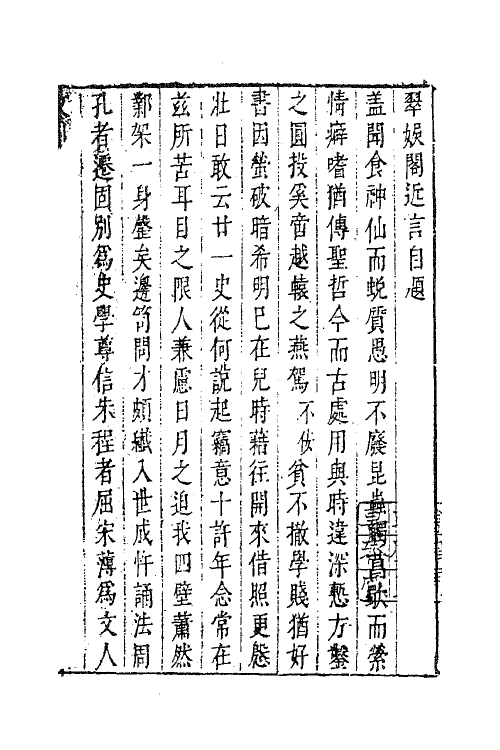 翠娛閣近言自題
盖聞食神仙而蛻質愚明不廢昆蟲觸菖歜而縈
情癖嗜猶傳聖哲今而古處用與時違深慙方鑿
之圓投奚啻越轅之燕駕不佞貧不撤學賤猶好
書因螢破暗希明已在兒時藉往開來借照更慇
壯日敢云廿一史從何說起竊意十許年念常在
茲所苦耳目之限人兼慮日月之迫我四壁蕭然
鄴架一身罄矣邊笥問才頗纖入世成忤誦法周
孔者遷固別爲史學尊信朱程者屈宋薄爲文人